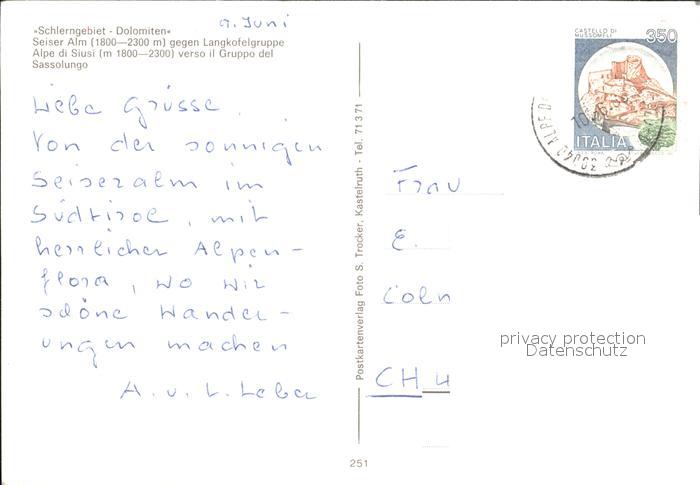 9. Juni
»Schlerngebiet - Dolomiten«
Seiser Alm (1800—2300 m) gegen Langkofelgruppe
Alpe di Siusi (m 1800—2300) verso il Gruppo del
Sassolungo
Liebe Grüsse.
Von der sonnigen
Seiseralm im
Südtirol, mit
herrlicher Alpen-
flora, wo wir
schöne Wander-
ungen machen
A. u. L.
Postkartenverlag Foto S. Trocker, Kastelruth - Tel. 71371
251
CASTELLO DI
MUSSOMELI
350
ITALIA
Frau
E.
CH 4
privacy protection
Datenschutz